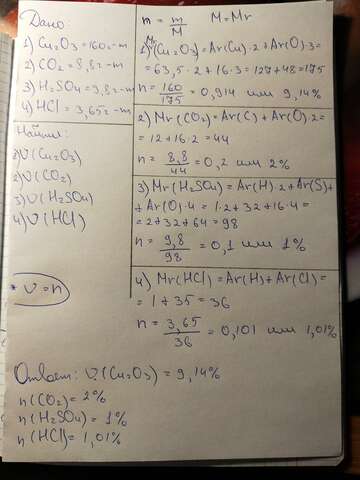 Дано:
1) Cu₂O₃ = 160г - m
2) CO₂ = 8,8г - m
3) H₂SO₄ = 9,8г - m
4) HCl = 3,65г - m
Найти:
1) ν(Cu₂O₃)
2) ν(CO₂)
3) ν(H₂SO₄)
4) ν(HCl)
* ν = n
n = m/M M = Mr
1) Mr(Cu₂O₃) = Ar(Cu)·2 + Ar(O)·3 =
= 63,5·2 + 16·3 = 127 + 48 = 175
n = 160/175 = 0,914 или 9,14%
2) Mr(CO₂) = Ar(C) + Ar(O)·2 =
= 12 + 16·2 = 44
n = 8,8/44 = 0,2 или 2%
3) Mr(H₂SO₄) = Ar(H)·2 + Ar(S) +
+ Ar(O)·4 = 1·2 + 32 + 16·4 =
= 2 + 32 + 64 = 98
n = 9,8/98 = 0,1 или 1%
4) Mr(HCl) = Ar(H) + Ar(Cl) =
= 1 + 35 = 36
n = 3,65/36 = 0,101 или 1,01%
Ответ: ν(Cu₂O₃) = 9,14%
n(CO₂) = 2%
n(H₂SO₄) = 1%
n(HCl) = 1,01%